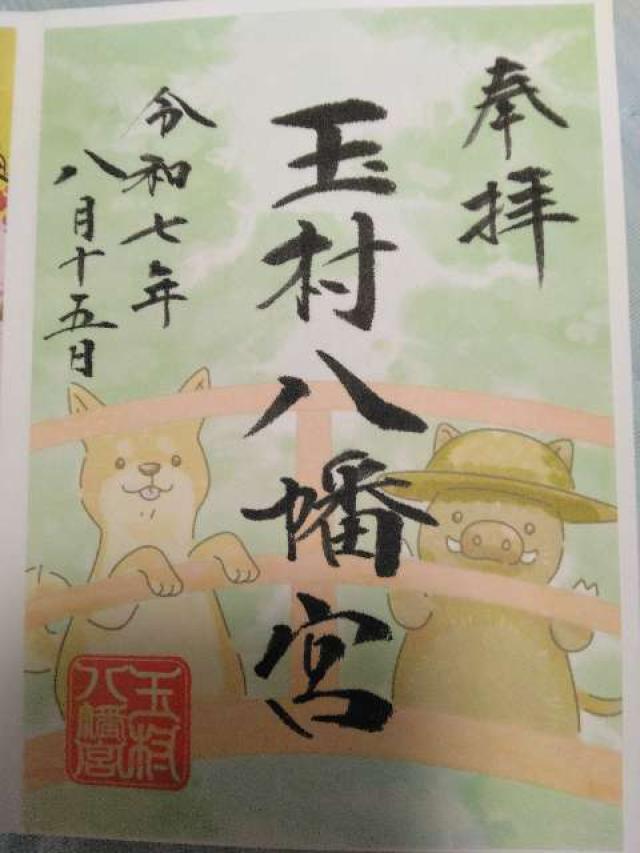 奉拝
玉村八幡宮
令和七年
八月十五日
玉村
八幡宮